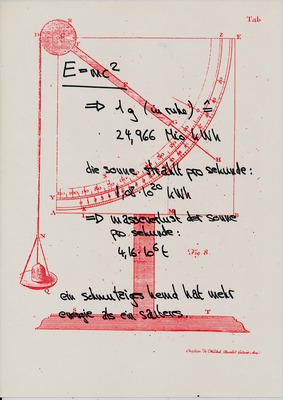 Tab
E = mc²
⇒ 1 g (in ruhe) ≙
24,966 Mio kWh
die sonne strahlt pro sekunde:
1,04·10²⁰ kWh
⇒ masseverlust der sonne
pro sekunde:
4,16·10⁶ t
Fig. 8
ein schmutziges hemd hat mehr
energie als ein sauberes.